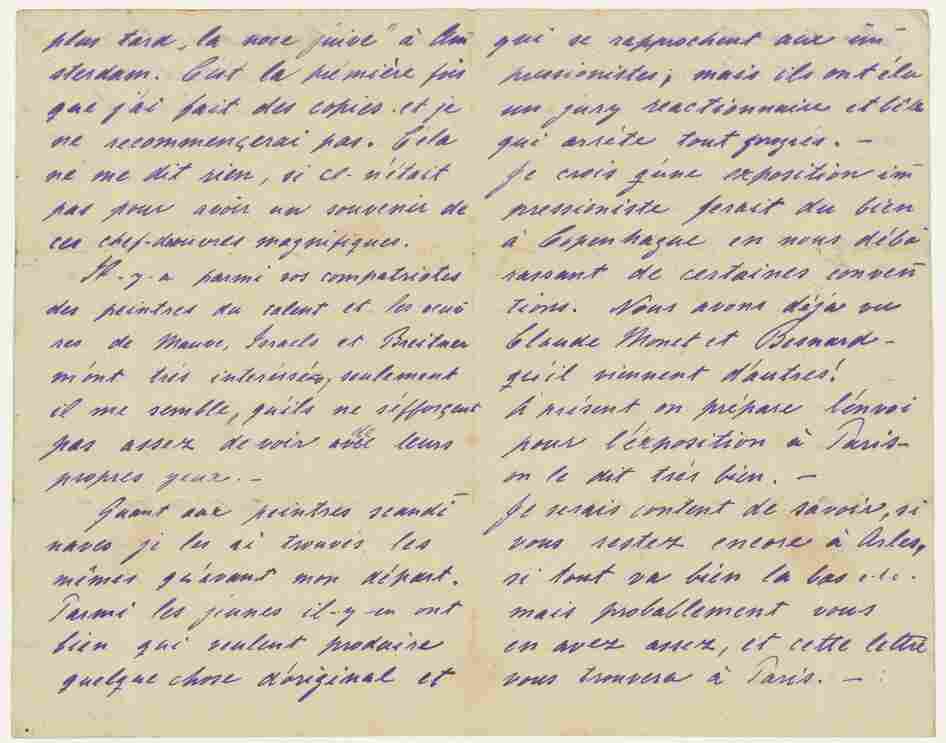 plus tard „la nose juive" à Am
sterdam. C'est la pémière fois
que j'ai fait des copies et je
ne recommençerai pas. Cela
ne me dit rien, si ce n'était
pas pour avoir un souvenir de
ces chef-d'ouvres magnifiques.
Il-y-a parmi vos compatriotes
des peintres du talent et les œuv
res de Mauve, Israels et Breitner
m'ont trés interéssés, seulement
il me semble, qu'ils ne s'éfforçent
pas assez de voir avec leurs
propres yeux. –
Quant aux peintres scandi
naves je les ai trouvés les
mêmes qu'avant mon départ.
Parmi les jeunes il-y-en ont
bien qui veulent produire
quelque chose d'original et
qui se rapprochent aux im
pressionistes; mais ils ont élu
un jury reactionnaire et
qui arrête tout progrès. –
Je crois qu'une exposition im
pressioniste ferait du bien
à Copenhague en nous débá
rassant de certaines conven
tions. Nous avons déja vu
Claude Monet et Besnard –
qu'il viennent d'autres!
A présent on prépare l'énvoi
pour l'éxposition à Paris –
on le dit trés bien. –
Je serais content de savoir, si
vous restez encore à Arles,
si tout va bien la bas etc.
mais probablement vous
en avez assez, et cette lettre
vous trouvera à Paris. –